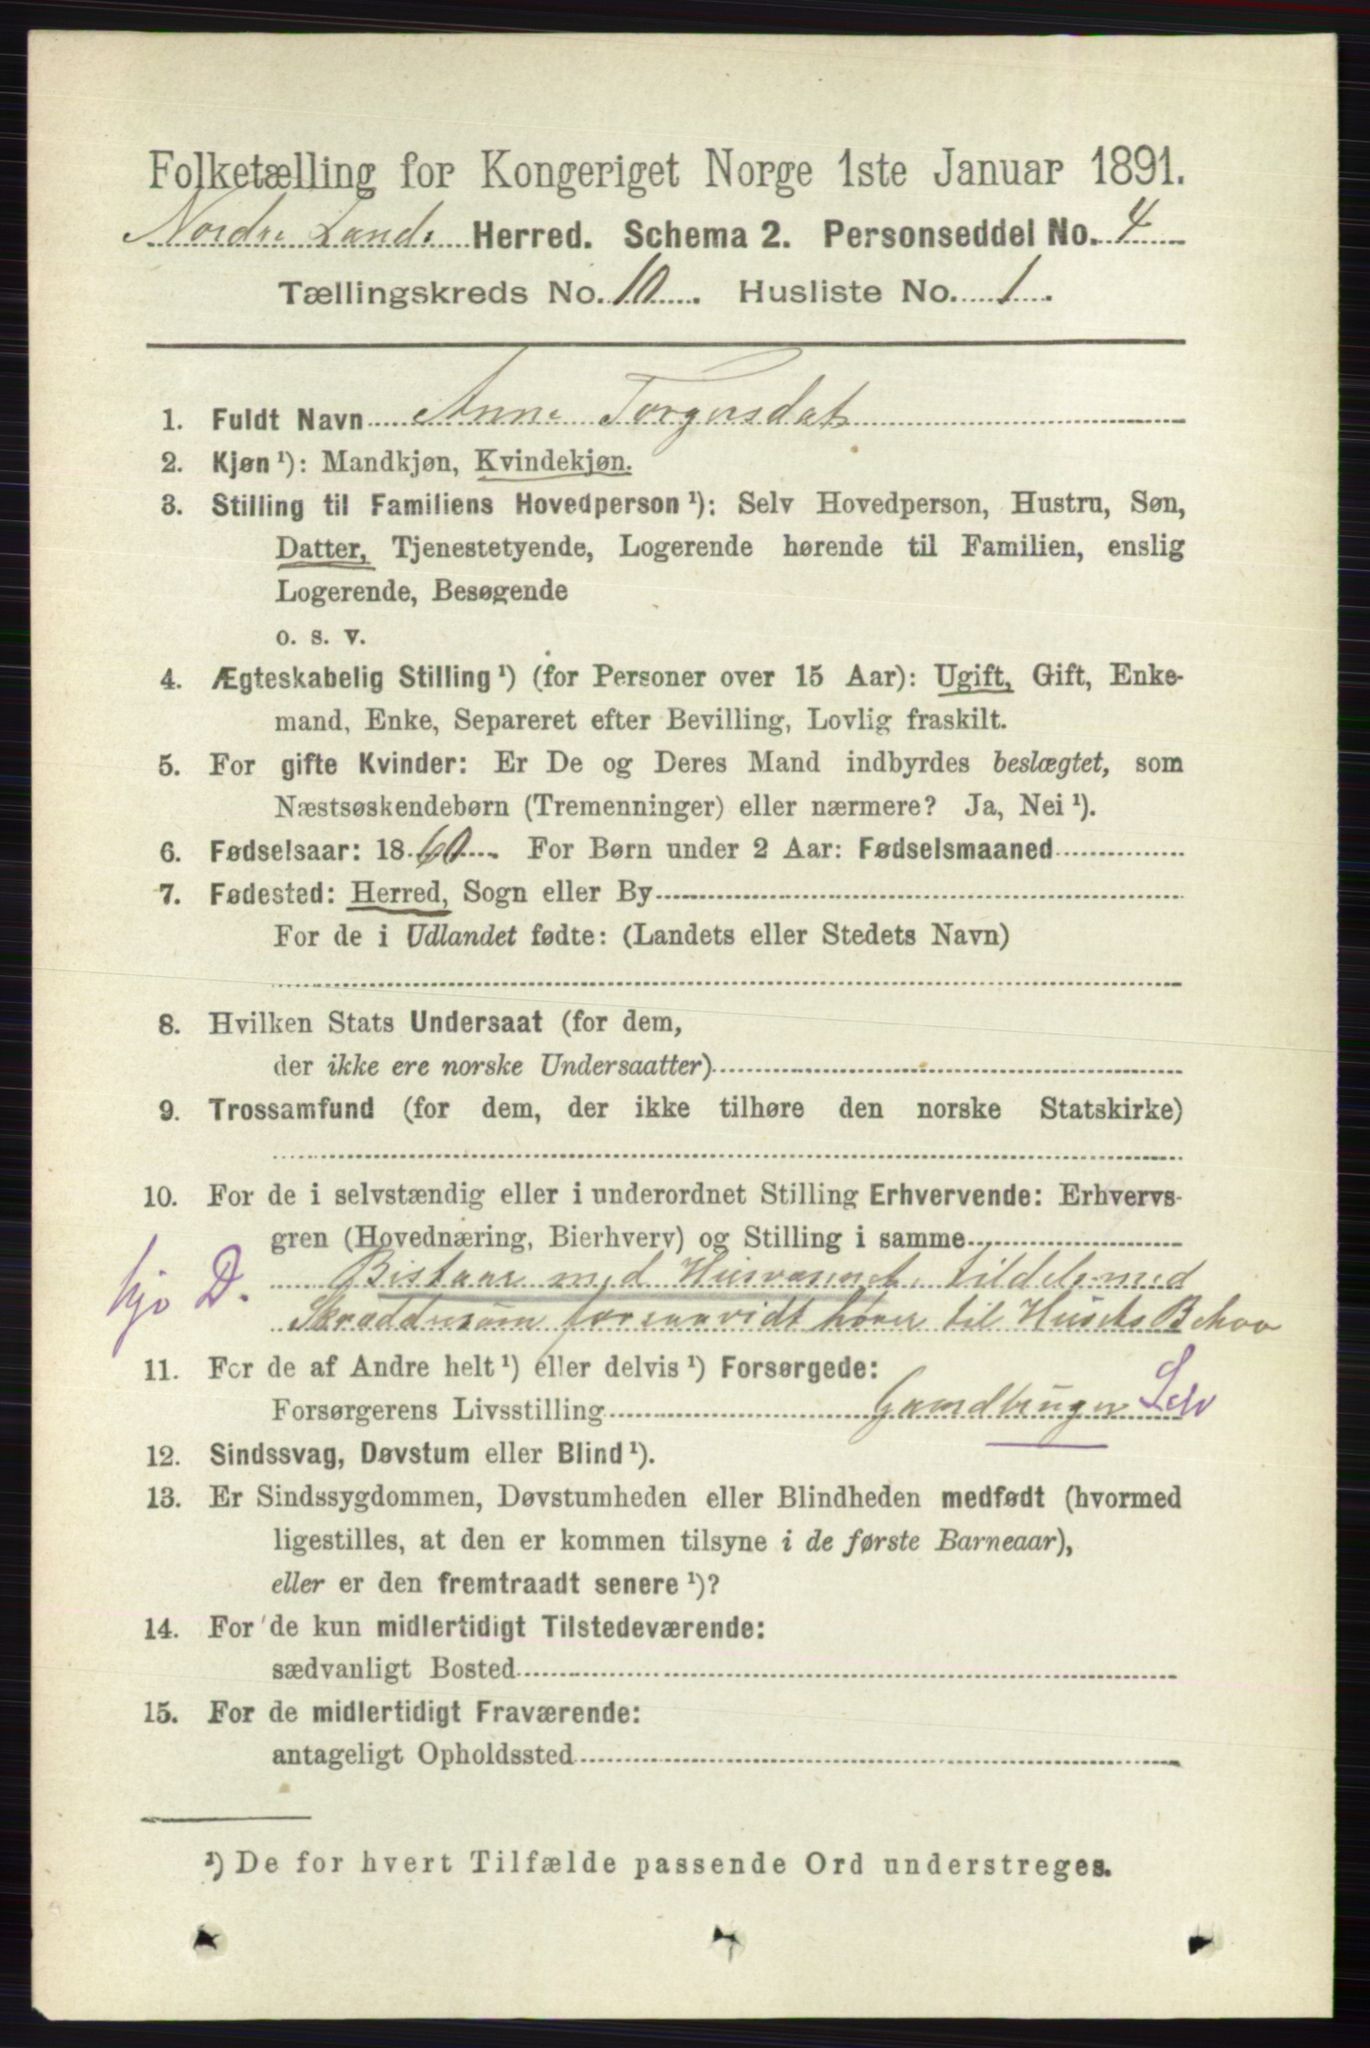 Folketælling for Kongeriget Norge 1ste Januar 1891.
Nordre Lands Herred. Schema 2. Personseddel No. 4
Tællingskreds No. 10. Husliste No. 1.
1. Fuldt Navn Anne Torgersdat
2. Kjøn ¹): Mandkjøn, Kvindekjøn.
3. Stilling til Familiens Hovedperson ¹): Selv Hovedperson, Hustru, Søn,
Datter, Tjenestetyende, Logerende hørende til Familien, enslig
Logerende, Besøgende
o. s. v.
4. Ægteskabelig Stilling ¹) (for Personer over 15 Aar): Ugift, Gift, Enke-
mand, Enke, Separeret efter Bevilling, Lovlig fraskilt.
5. For gifte Kvinder: Er De og Deres Mand indbyrdes beslægtet, som
Næstsøskendebørn (Tremenninger) eller nærmere? Ja, Nei ¹).
6. Fødselsaar: 1860. For Børn under 2 Aar: Fødselsmaaned
7. Fødested: Herred, Sogn eller By
For de i Udlandet fødte: (Landets eller Stedets Navn)
8. Hvilken Stats Undersaat (for dem,
der ikke ere norske Undersaatter)
9. Trossamfund (for dem, der ikke tilhøre den norske Statskirke)
10. For de i selvstændig eller i underordnet Stilling Erhvervende: Erhvervs-
gren (Hovednæring, Bierhverv) og Stilling i samme
hjo D. Bistaar med Husvæsenet, tildels med
Skræddersøm forsaavidt hører til Husets Behov
11. For de af Andre helt ¹) eller delvis ¹) Forsørgede:
Forsørgerens Livsstilling Gaardbruger Selv
12. Sindssvag, Døvstum eller Blind ¹).
13. Er Sindssygdommen, Døvstumheden eller Blindheden medfødt (hvormed
ligestilles, at den er kommen tilsyne i de første Barneaar),
eller er den fremtraadt senere ¹)?
14. For de kun midlertidigt Tilstedeværende:
sædvanligt Bosted
15. For de midlertidigt Fraværende:
antageligt Opholdssted
¹) De for hvert Tilfælde passende Ord understreges.